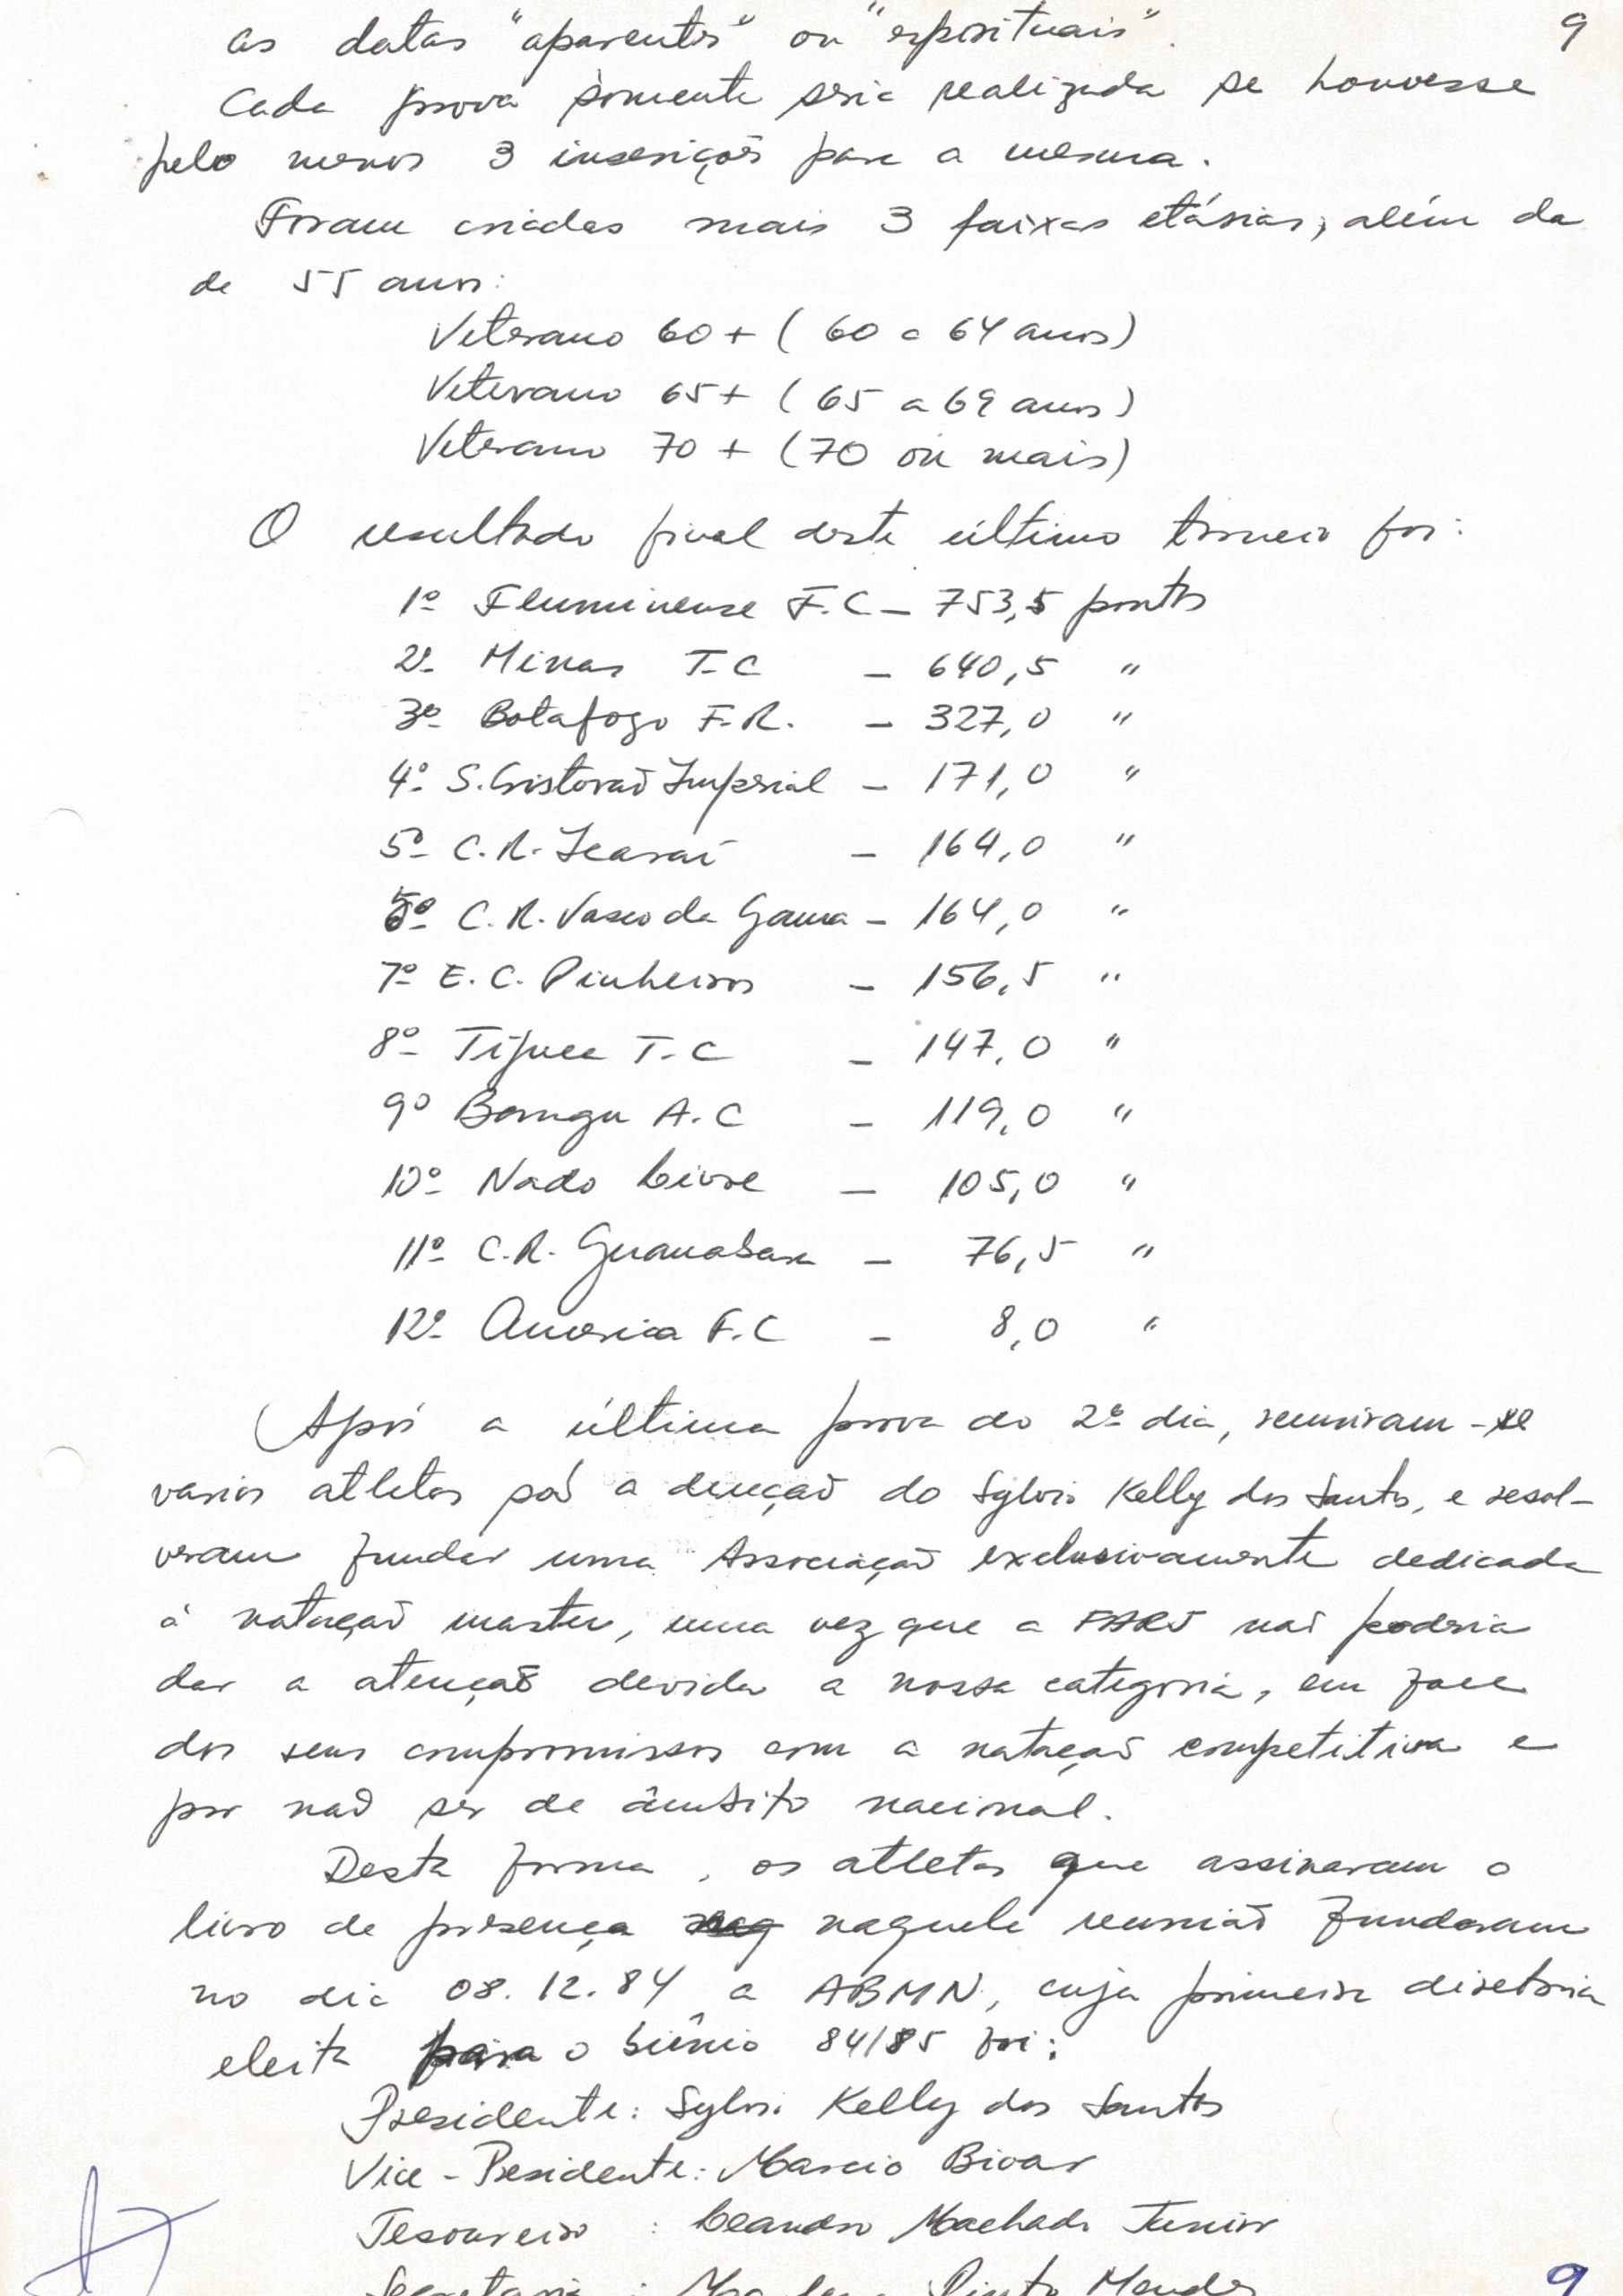 as datas "aparentes" ou "espirituais". 9
Cada prova somente seria realizada se houvesse
pelo menos 3 inscrições para a mesma.
Foram criadas mais 3 faixas etárias, além da
de 55 anos:
Veterano 60 + ( 60 a 64 anos)
Veterano 65 + ( 65 a 69 anos)
Veterano 70 + (70 ou mais)
O resultado final deste último torneio foi:
1º Fluminense F.C - 753,5 pontos
2º Minas T.C - 640,5 "
3º Botafogo F.R. - 327,0 "
4º S. Cristovaõ Imperial - 171,0 "
5º C.R. Icaraí - 164,0 "
5º C.R. Vasco da Gama - 164,0 "
7º E.C. Pinheiros - 156,5 "
8º Tijuca T.C - 147,0 "
9º Bangu A.C - 119,0 "
10º Nado Livre - 105,0 "
11º C.R. Guanabara - 76,5 "
12º America F.C - 8,0 "
Após a última prova do 2º dia, reuniram-se
varios atletas sob a direçaõ do Sylvio Kelly dos Santos, e resol-
veram fundar uma Associaçaõ exclusivamente dedicada
à nataçaõ master, uma vez que a FARJ naõ poderia
dar a atençaõ devida a nossa categoria, em face
dos seus compromissos com a nataçaõ competitiva e
por naõ ser de âmbito nacional.
Desta forma, os atletas que assinaram o
livro de presença naquela reuniaõ fundaram
no dia 08.12.84, a ABMN, cuja primeira diretoria
eleita para o biênio 84/85 foi:
Presidente: Sylvio Kelly dos Santos
Vice-Presidente: Marcio Bivar
Tesoureiro : Leandro Machado Junior
Secretaria : Pinto Mendes
9